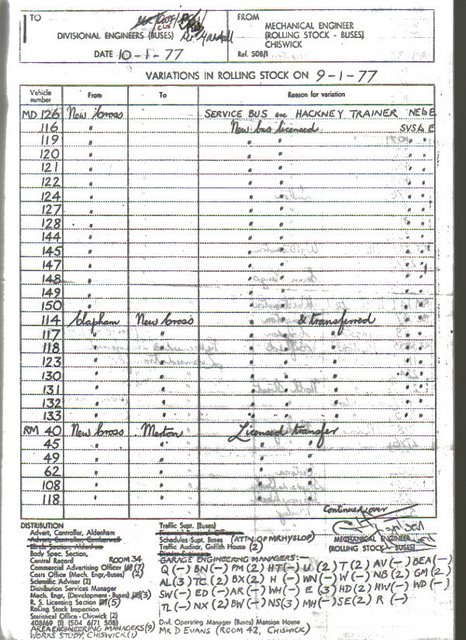 TO
DIVISIONAL ENGINEERS (BUSES)
DATE 10-1-77
FROM
MECHANICAL ENGINEER
(ROLLING STOCK - BUSES)
CHISWICK
Ref. 508/1
VARIATIONS IN ROLLING STOCK ON 9-1-77
Vehicle number From To Reason for variation
MD 126 New Cross SERVICE BUS ex HACKNEY TRAINER NE to E
116 " New bus licensed SVS to E
119 " " " " "
120 " " " " "
121 " " " " "
122 " " " " "
124 " " " " "
127 " " " " "
128 " " " " "
144 " " " " "
145 " " " " "
147 " " " " "
148 " " " " "
149 " " " " "
150 " " " " "
114 Clapham New Cross " & transferred
117 " " " "
118 " " " "
123 " " " "
130 " " " "
131 " " " "
132 " " " "
133 " " " "
RM 40 New Cross Merton Licensed transfer
45 " " " "
49 " " " "
62 " " " "
108 " " " "
118 " " " "
Continued over
MECHANICAL ENGINEER
(ROLLING STOCK - BUSES)
DISTRIBUTION
Advert. Controller, Aldenham
Body Spec. Section,
Central Record ROOM 34
Commercial Advertising Officer (7)
Costs Office (Mech. Engr.-Buses) (2)
Scientific Adviser (2)
Distribution Services Manager
Mech. Engr. Development - Buses (3)
R. S. Licensing Section (5)
Rolling Stock Inspection
Statistical Office - Chiswick (2)
408/69 (1) 504 6/71 508)
AREA ENGINEERING MANAGERS (9)
WORKS STUDY, CHISWICK (1)
Traffic Supt. (Buses)
Schedules Supt. Buses (ATTN. OF MR HYSLOP)
Traffic Auditor, Griffith House (2)
GARAGE ENGINEERING MANAGERS:-
Q (-) BN (-) PM (2) HT (-) U (2) T (2) AV (-) BEA (-)
AL (3) TC (2) BX (2) H (-) WN (-) W (-) NB (2) GM (2)
SW (-) ED (-) AR (-) WH (-) E (3) HD (2) HW (-) WD (-)
TL (-) NX (2) BW (-) NS (3) MH (-) SE (2) R (-)
Divl. Operating Manager (Buses) Mansion House
Mr D EVANS (ROOM 42, CHISWICK)